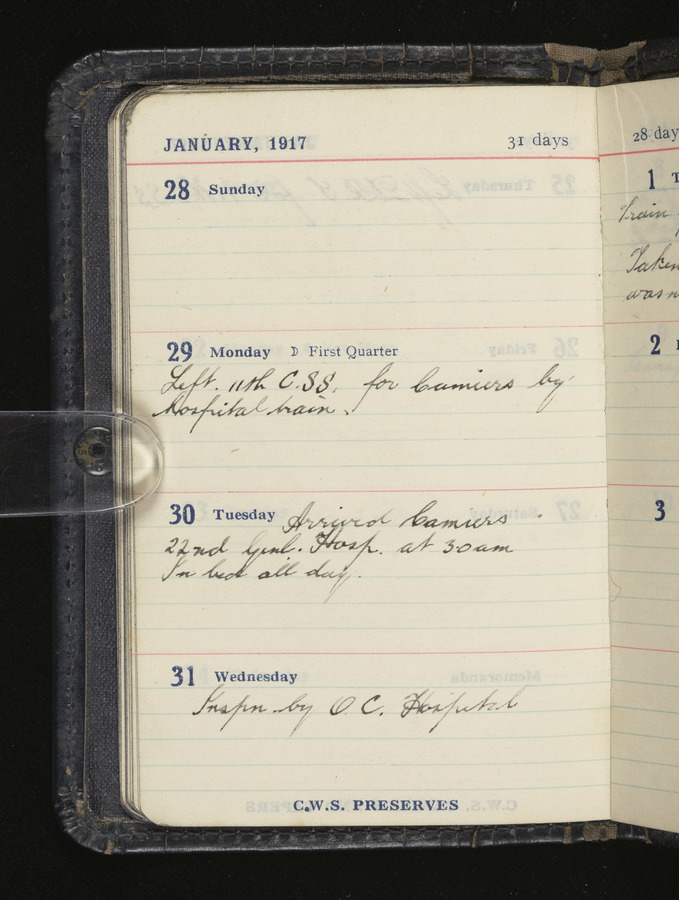 JANUARY, 1917 31 days
28 Sunday
29 Monday ☽ First Quarter
Left. 11th C.SS. for Camiers by
hospital train.
30 Tuesday Arrived Camiers
22nd Genl. Hosp. at 3 0 am
In bed all day.
31 Wednesday
Inspn by O.C. Hospital
C.W.S. PRESERVES
28 day
1 T
Train
Taken
was n
2
3